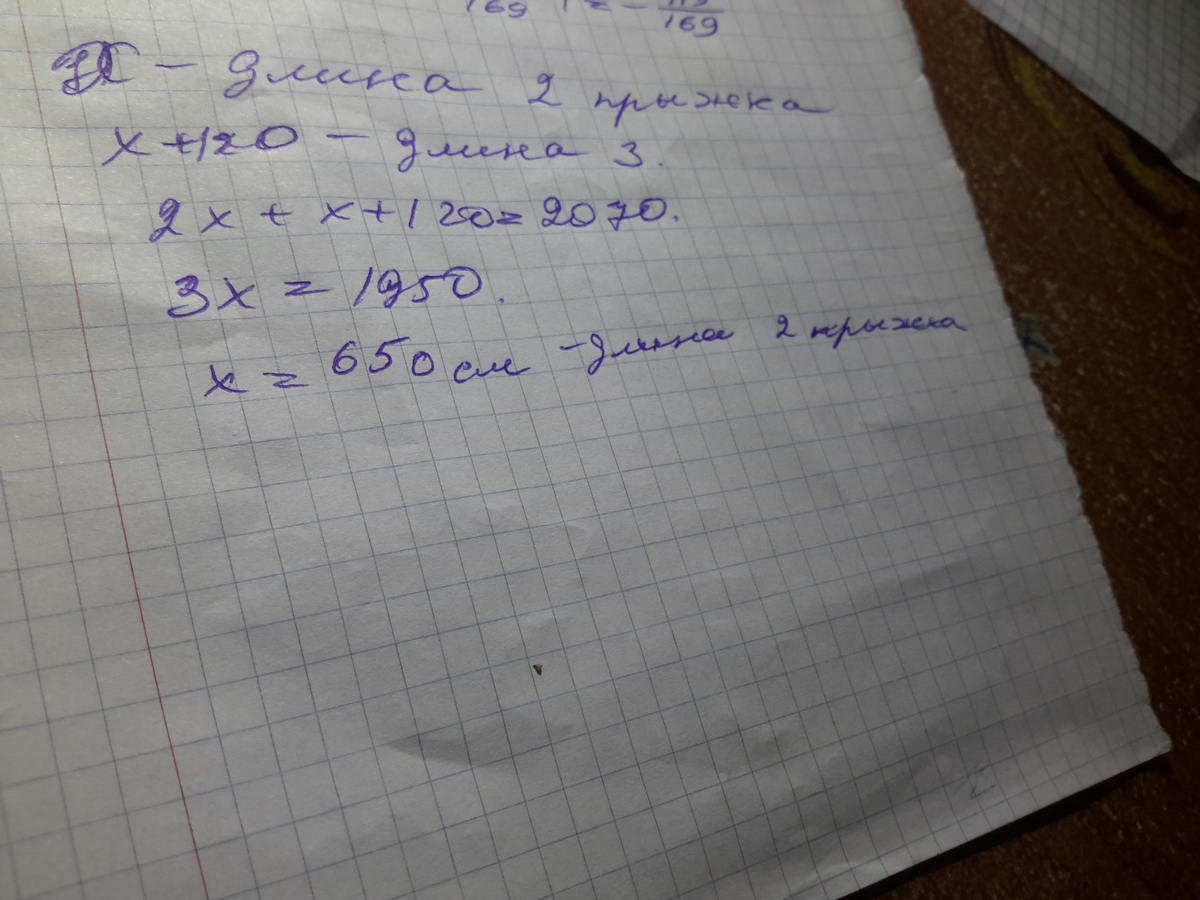 169
169
X – длина 2 прыжка
x + 120 – длина 3.
2x + x + 120 = 2070.
3x = 1950.
x = 650 см – длина 2 прыжка